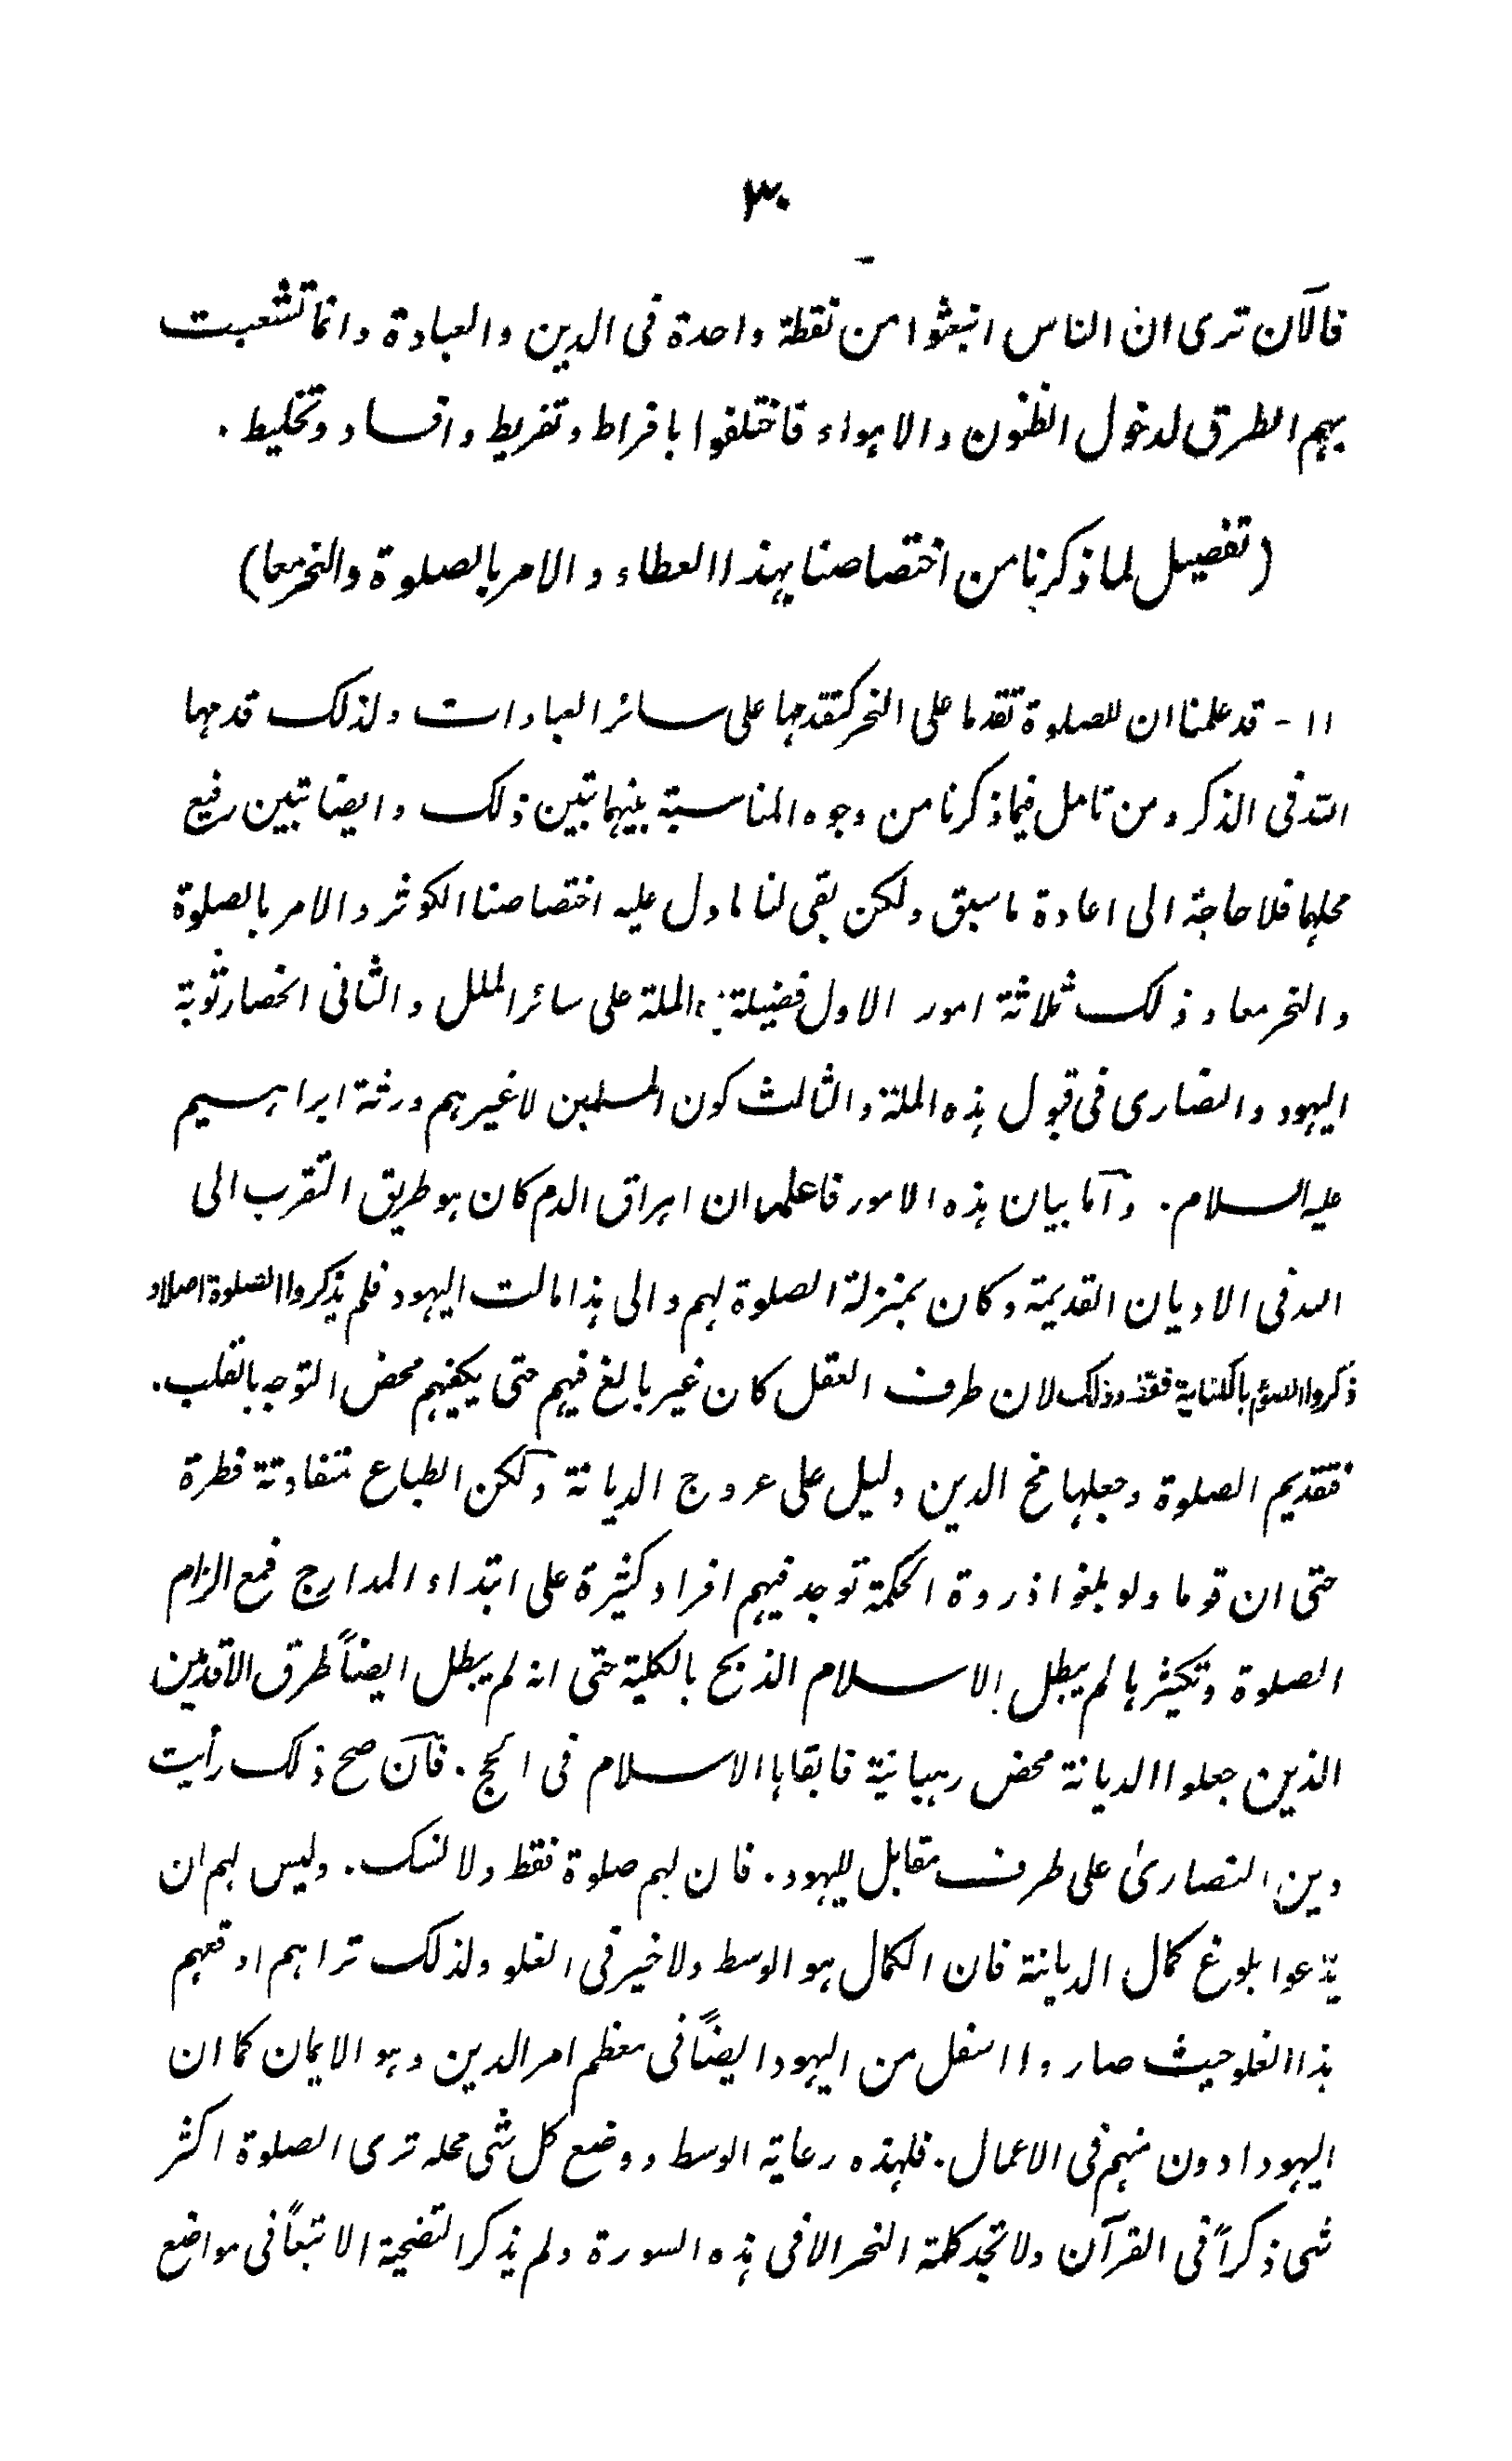 ٣٠
فالآن ترى ان الناس انبعثوا من نقطة واحدة فى الدين والعبادة وانما تشعبت
بهم الطرق لدخول الظنون والاهواء فاختلفوا بافراط وتفريط وافساد وتخليط .
(تفصيل لما ذكرنا من اختصاصنا بهذا العطاء والامر بالصلوة والنحر معا)
١١ - قد علمنا ان للصلوة تقدما على النحر كتقدمها على سائر العبادات ولذلك قدمها
الله فى الذكر ومن تامل فيما ذكرنا من وجوه المناسبة بينهما تبين ذلك وايضا تبين رفيع
محلهما فلا حاجة الى اعادة ما سبق ولكن بقى لنا ما دل عليه اختصاصنا الكوثر والامر بالصلوة
والنحر معا وذلك ثلاثة امور الاول فضيلة الملة على سائر الملل والثانى انحصار توبة
اليهود والنصارى فى قبول هذه الملة والثالث كون المسلمين لا غيرهم ورثة ابراهيم
عليه السلام . وآما بيان هذه الامور فاعلم ان اهراق الدم كان هو طريق التقرب الى
الله فى الاديان القديمة وكان بمنزلة الصلوة لهم والى هذا مالت اليهود فلم يذكروا الصلوة اصلا و
ذكروا بالكناية فقط وذلك لان طرف العقل كان غير بالغ فيهم حتى يكفيهم محض التوجه بالقلب .
فتقديم الصلوة وجعلها مخ الدين دليل على عروج الديانة ولكن الطباع متفاوتة فطرة
حتى ان قوما ولو بلغوا ذروة الحكمة توجد فيهم افراد كثيرة على ابتداء المدارج فمع الزام
الصلوة وتكثيرها لم يبطل الاسلام الذبح بالكلية حتى انه لم يبطل ايضاً طرق الاقدمين
الذين جعلوا الديانة محض رهبانية فابقاها الاسلام فى الحج . فآن صح ذلك رأيت
دين النصارىٰ على طرف مقابل لليهود . فان لهم صلوة فقط ولا نسك . وليس لهم ان
يدّعوا بلوغ كمال الديانة فان الكمال هو الوسط ولا خير فى الغلو ولذلك تراهم اوقعهم
هذا الغلو حيث صاروا اسفل من اليهود ايضاً فى معظم امر الدين وهو الايمان كما ان
اليهود ادون منهم فى الاعمال . فلهذه رعاية الوسط ووضع كل شى محله ترى الصلوة اكثر
شى ذكراً فى القرآن ولا تجد كلمة النحر الا فى هذه السورة ولم يذكر التضحية الا تبعاً فى مواضع